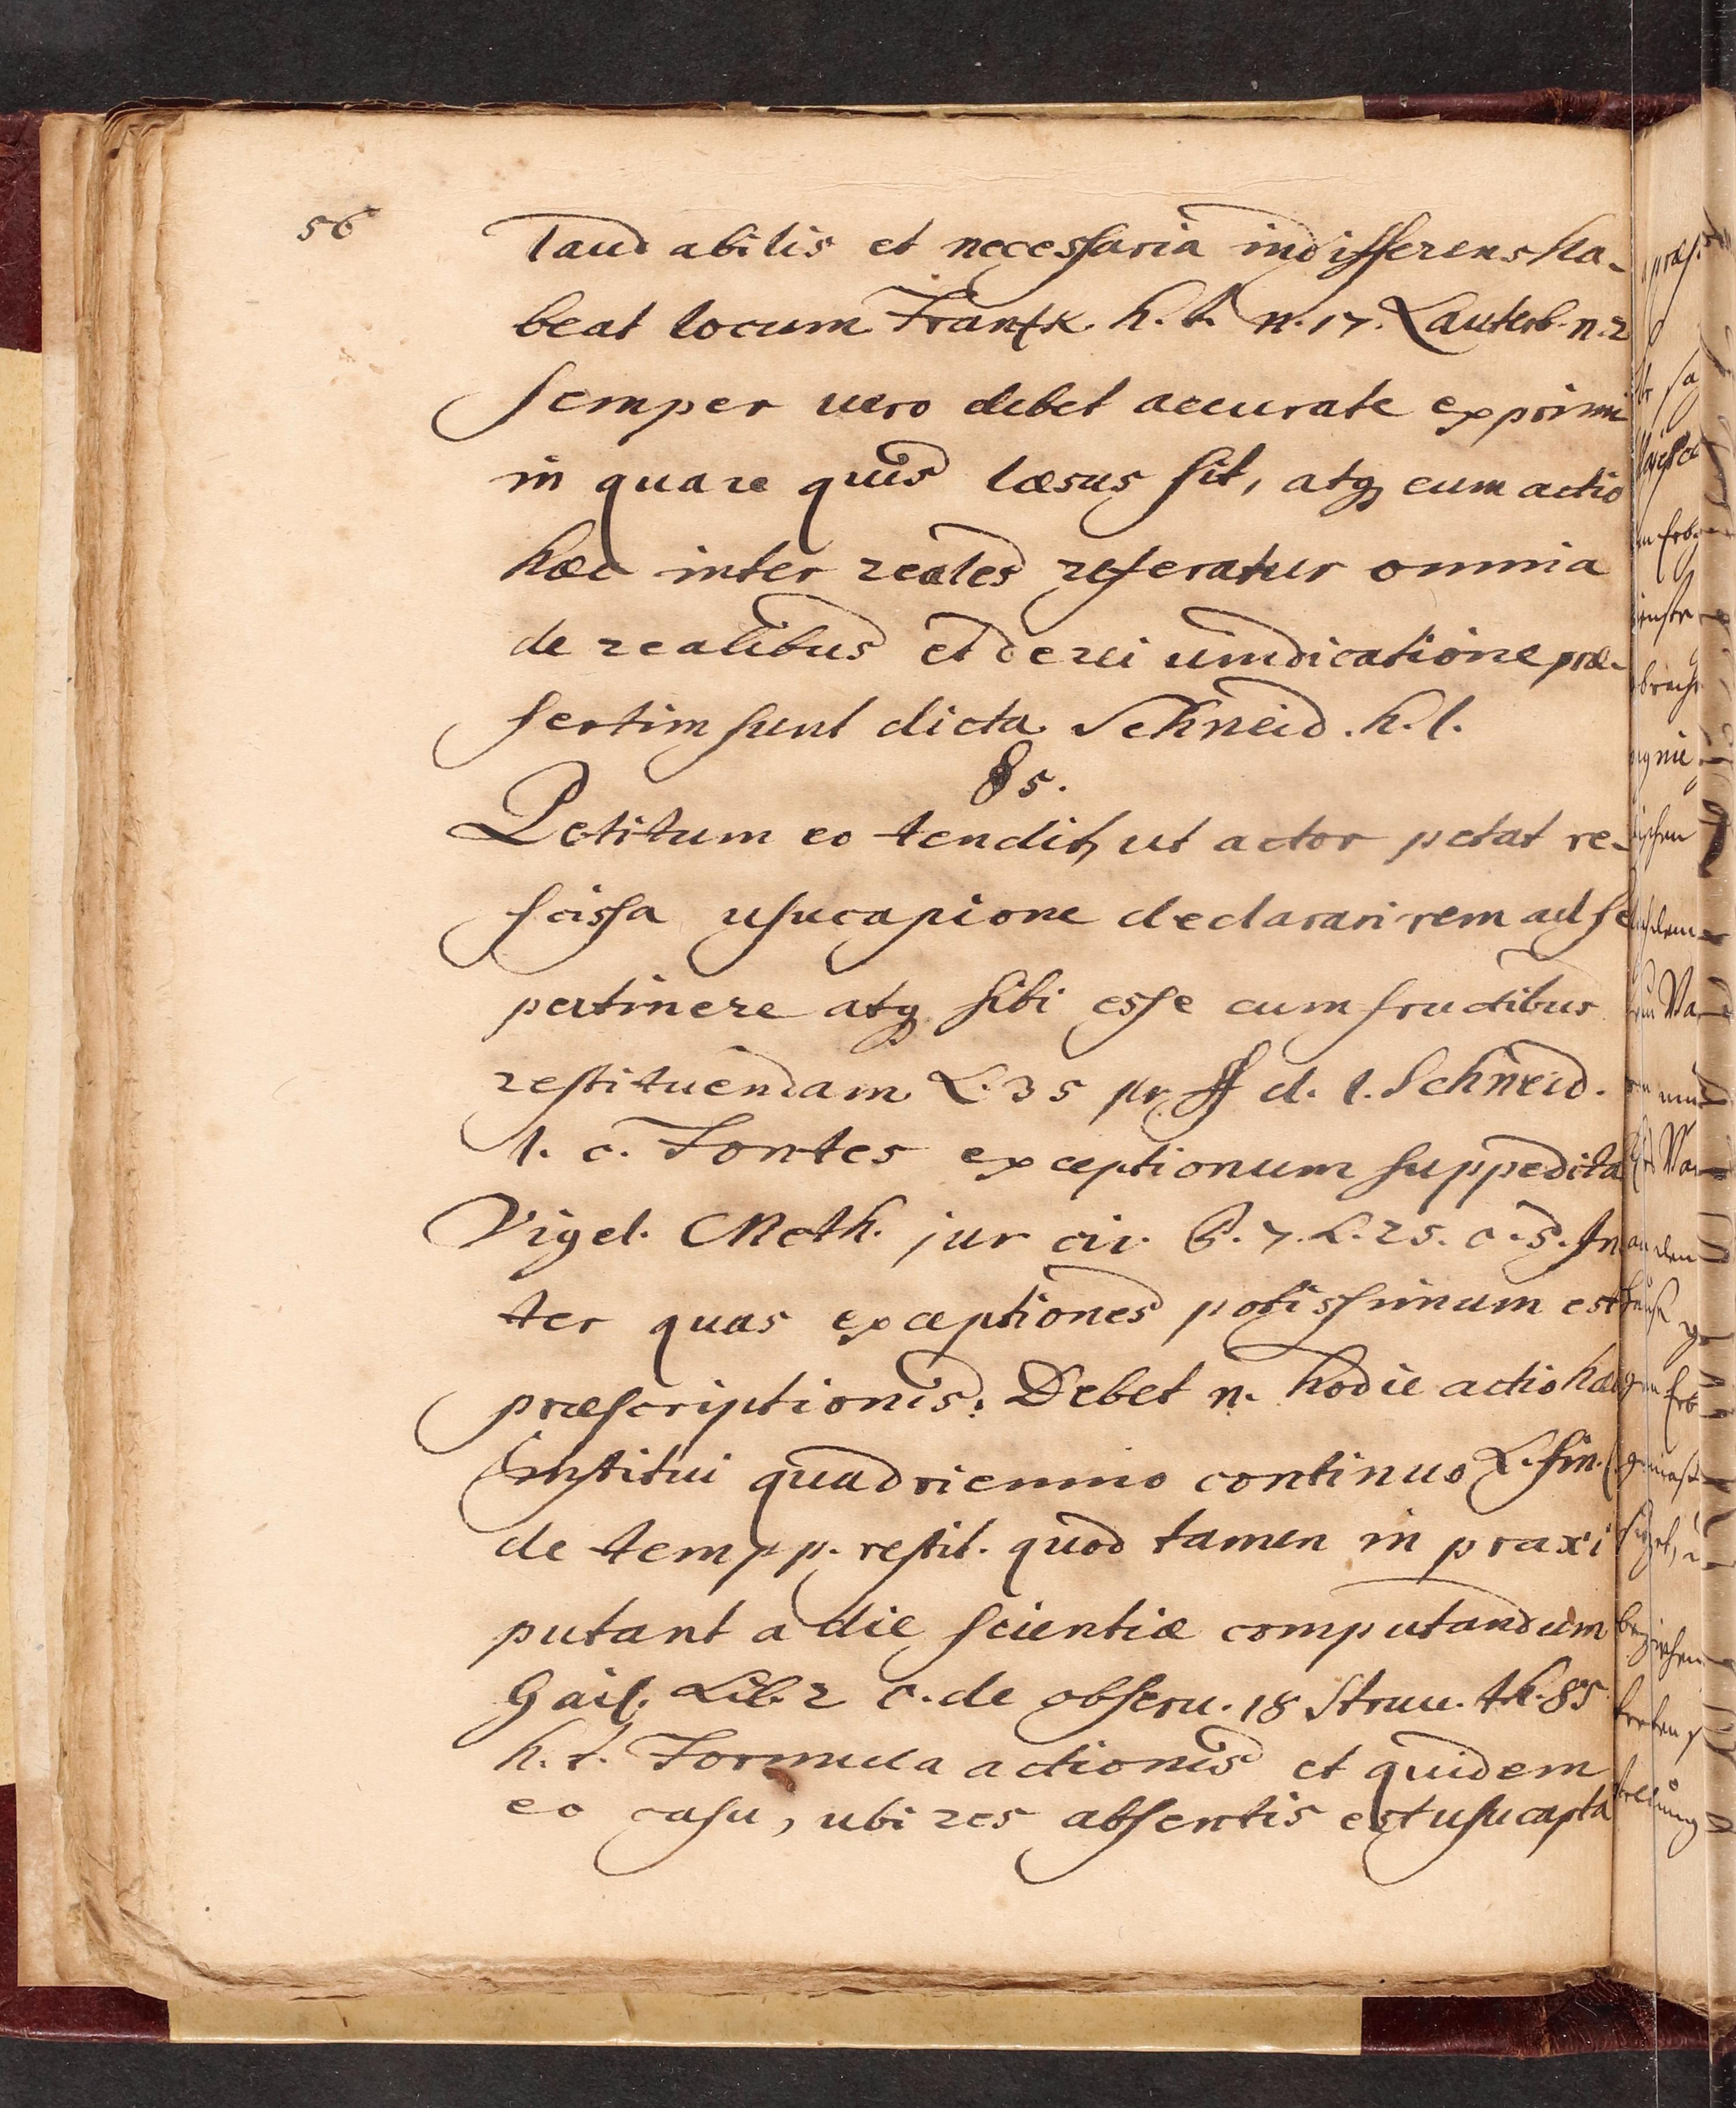 56
laudabilis et necessaria indifferens ha-
beat locum Frantzk. h. t. n. 17. Lauterb. n. 2
semper vero debet accurate exprimi
in qua re quis læsus sit, atq; cum actio
hæc inter reales referatur omnia
de realibus et de rei vindicatione præ-
sertim sunt dicta Schneid. h. l.
§ 5.
Petitum eo tendit, ut actor petat re-
scissa usucapione declarari rem ad se
pertinere atq; sibi esse cum fructibus
restituendam L. 35 pr. ff d. l. Schneid.
l. c. Fontes exceptionum suppedita
Vigel. Meth. jur civ. P. 7. L. 25. c. 5. In
ter quas exceptiones potissimum est
præscriptionis. Debet n. hodie actio hæc
institui quadriennio continuo L. fin. C
de tempp. restit. quod tamen in praxi
putant a die scientiæ computandum
Gail. Lib. 2 c. de observ. 18 Struv. th. 85
h. t. Formula actionis et quidem
eo casu, ubi res absentis est usucapta